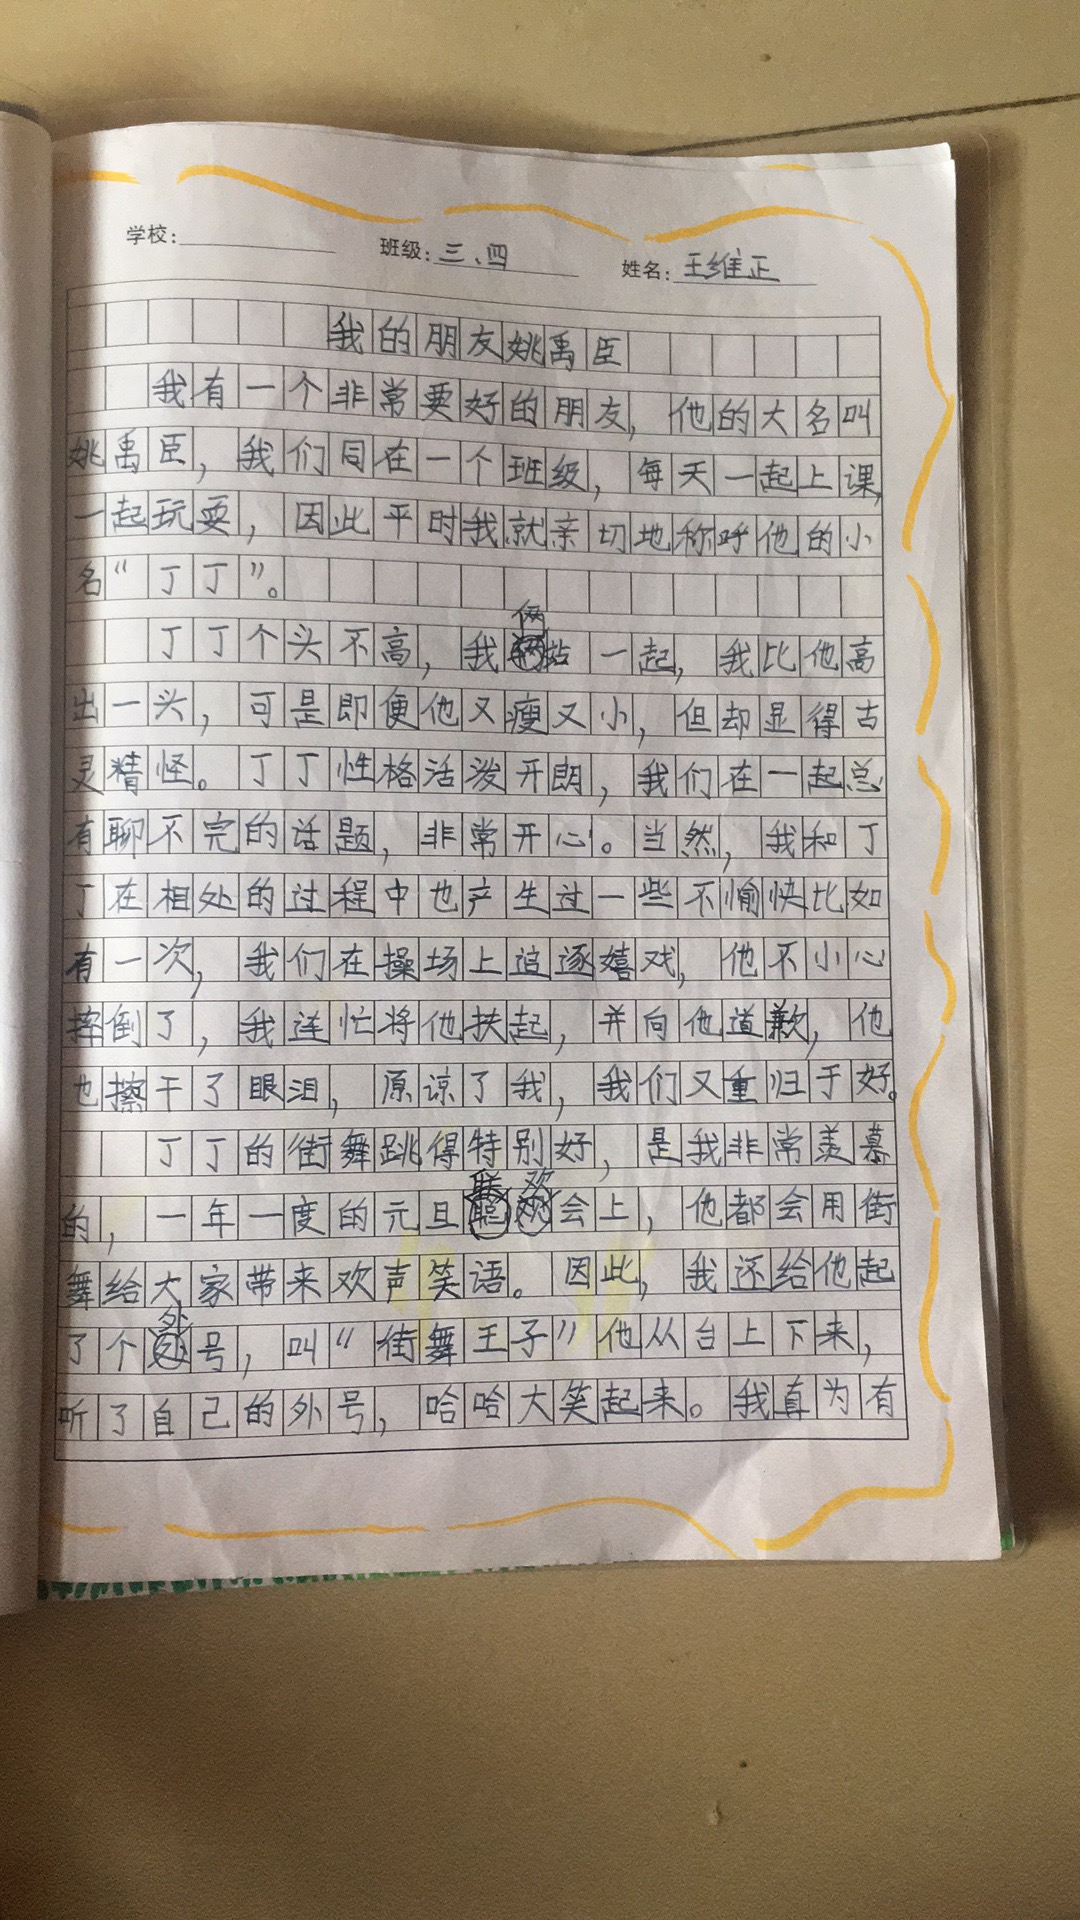 学校: 班级:三、四 姓名:王维正
我的朋友姚禹臣
我有一个非常要好的朋友,他的大名叫
姚禹臣,我们同在一个班级,每天一起上课,
一起玩耍,因此平时我就亲切地称呼他的小
名“丁丁”。
丁丁个头不高,我俩站一起,我比他高
出一头,可是即便他又瘦又小,但却显得古
灵精怪。丁丁性格活泼开朗,我们在一起总
有聊不完的话题,非常开心。当然,我和丁
丁在相处的过程中也产生过一些不愉快比如
有一次,我们在操场上追逐嬉戏,他不小心
摔倒了,我连忙将他扶起,并向他道歉,他
也擦干了眼泪,原谅了我,我们又重归于好。
丁丁的街舞跳得特别好,是我非常羡慕
的,一年一度的元旦联欢会上,他都会用街
舞给大家带来欢声笑语。因此,我还给他起
了个外号,叫“街舞王子”他从台上下来,
听了自己的外号,哈哈大笑起来。我真为有